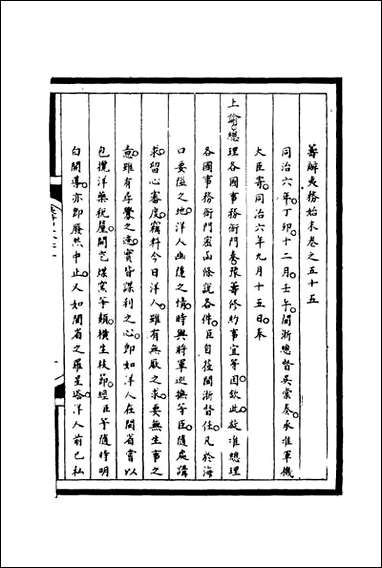 籌辦夷務始末卷之五十五
同治六年丁卯十二月壬午閩浙總督吳棠奏承准軍機
大臣寄同治六年九月十五日奉
上諭總理各國事務衙門奏張籌修約事宜等因欽此並准總理
各國事務衙門密函條說各件臣自莅閩浙督任凡於海
口要隘之地洋人幽隱之情時與將軍巡撫等臣隨處講
求留心審度竊料今日洋人雖有無厭之求要無生事之
意雖有尋釁之迹實皆謀利之心即如洋人在閩省嘗以
包攬洋藥稅釐開挖煤窯等類橫生枝節經臣等隨時明
白開導亦即廢然中止又如閩省之羅星塔洋人前已私